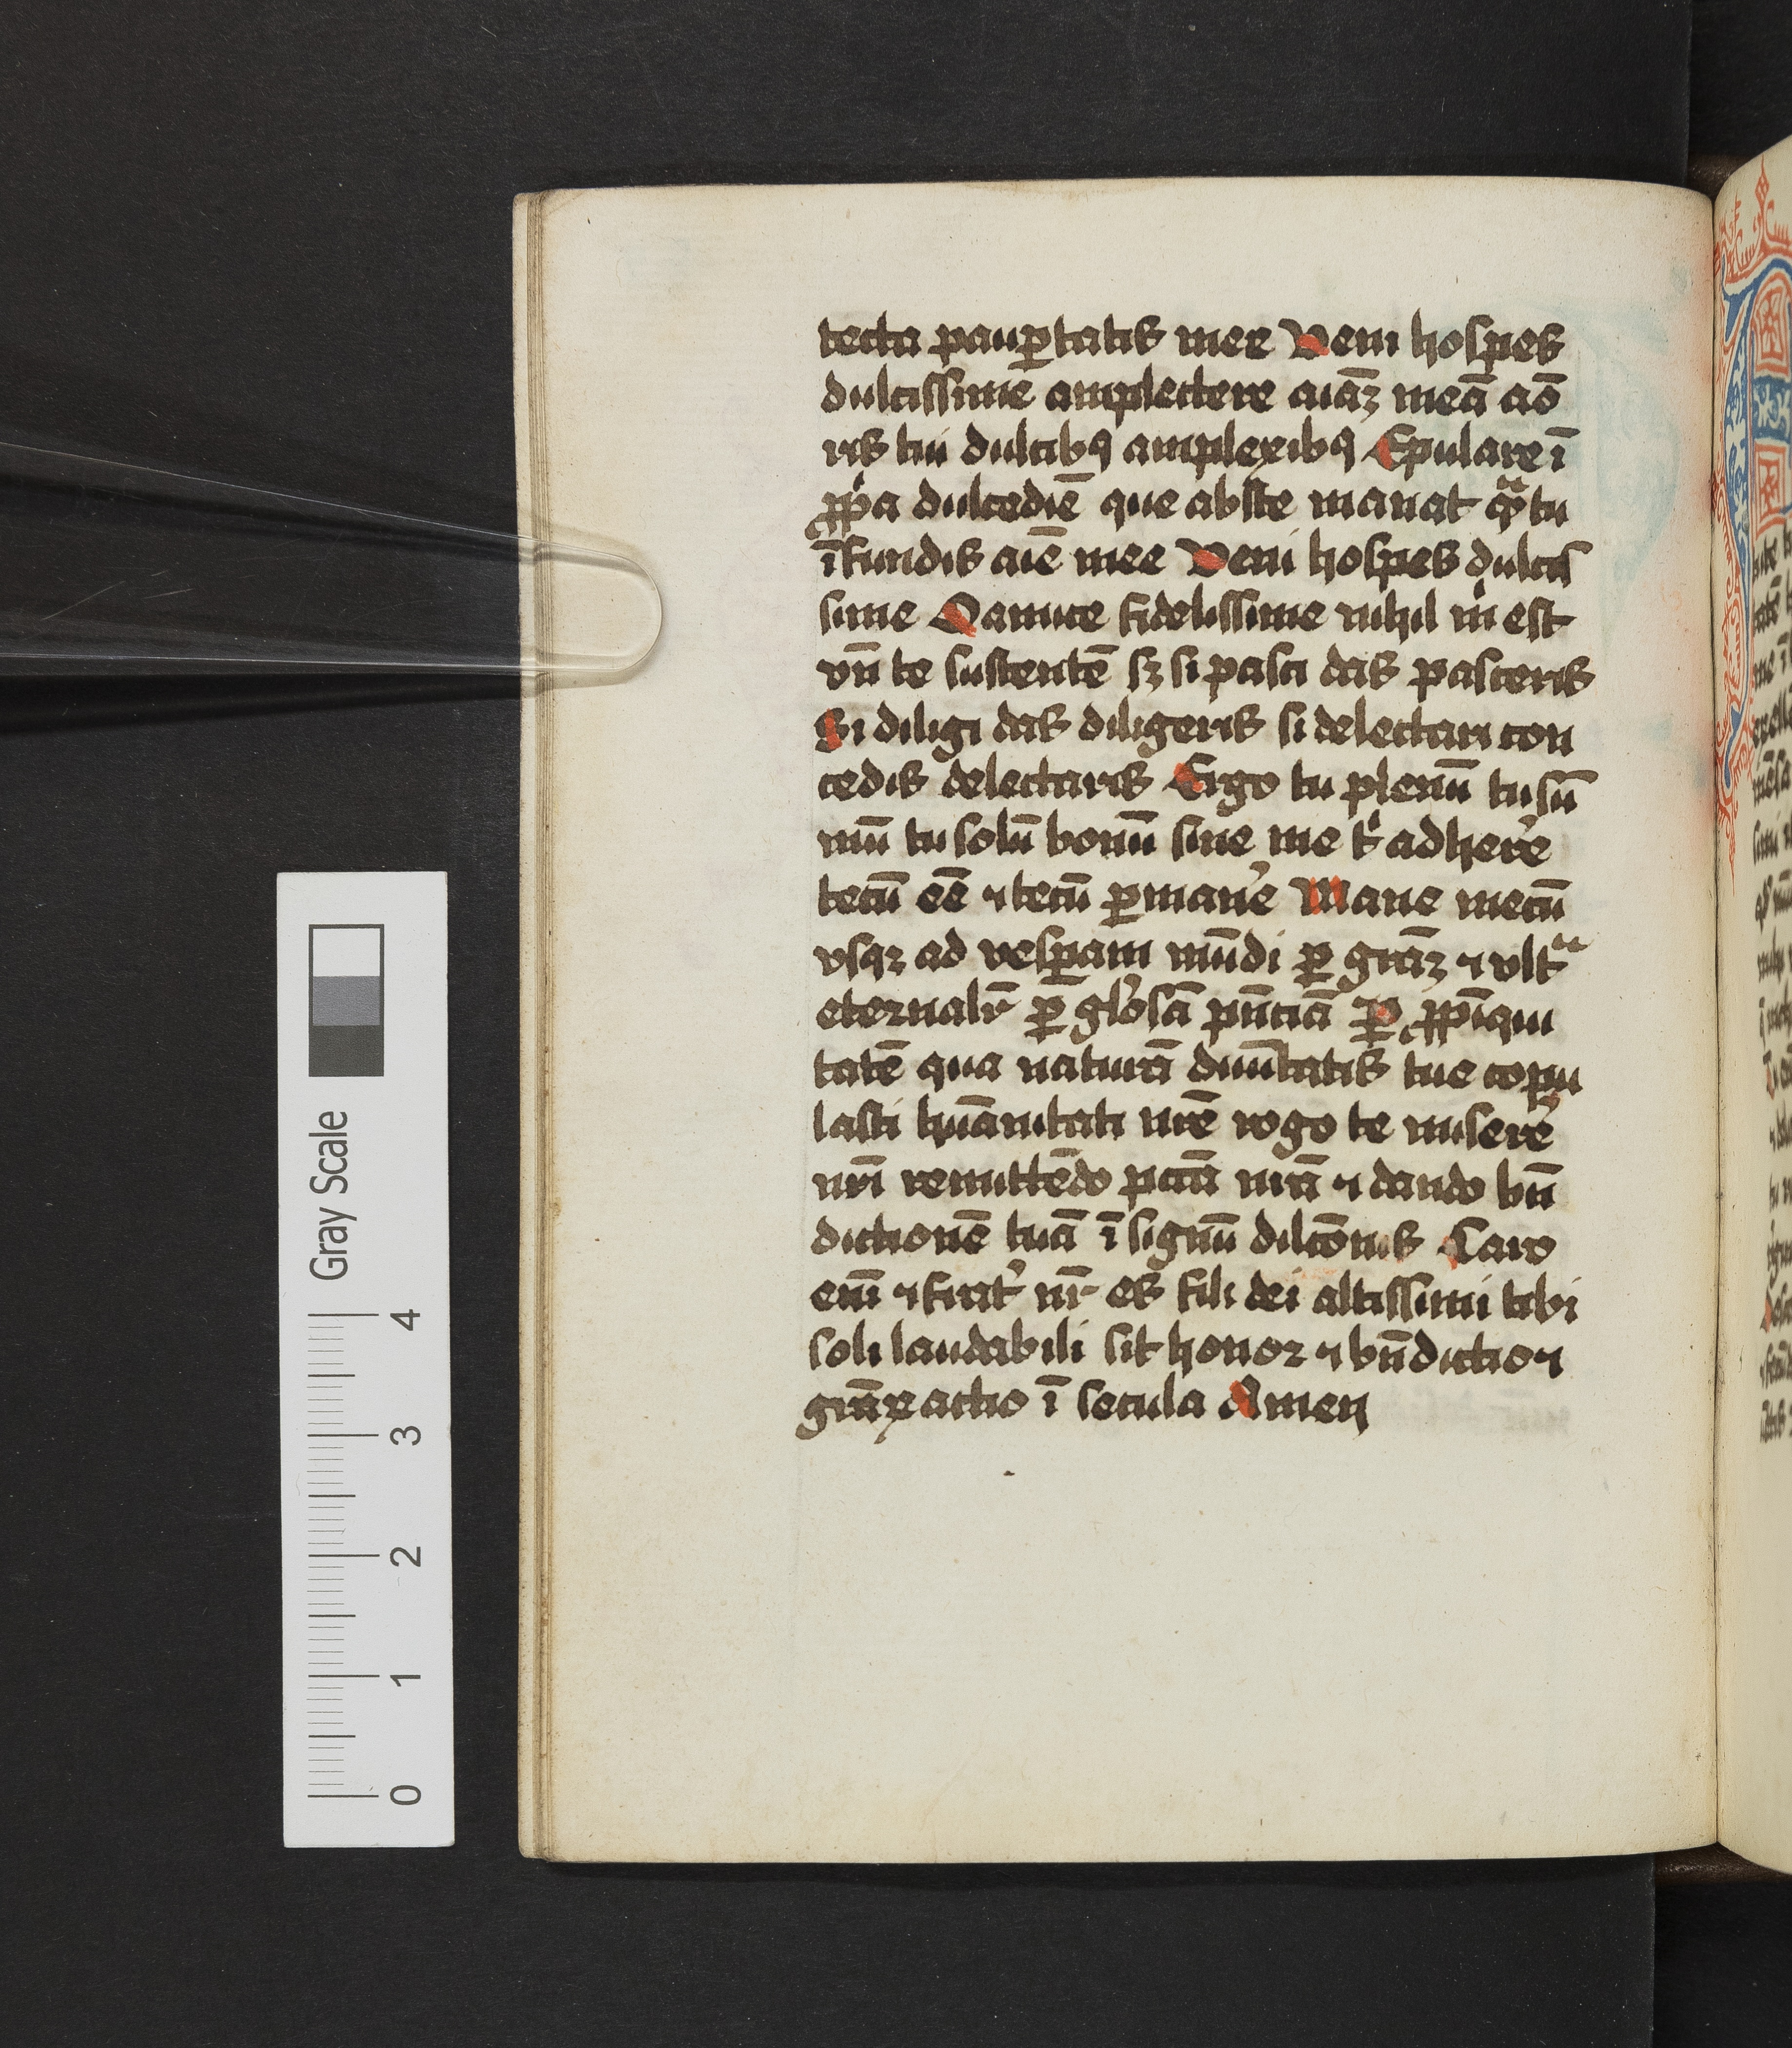 tecta paup̱tatis mee Veni hospes
dulcissime amplectere aiāꝫ meā aō
ris tui dulcibꝯ amplexibꝯ Epulare ī
ꝓpͥa dulcediē que abste manat qᷓ tu
īfundis aīe mee Veni hospes dulcis
sime O amice fidelissime nihil mͥ est
vn̄ te sustentē sꝫ si pasci das pasceris
Si diligi das diligeris si delectari con
cedis delectaris Ergo tu plenū tu sū
mū tu solū bonū sine me tͥ adherē
tecū eē ⁊ tecū ꝑmanē Mane mecū
vsqꝫ ad vesꝑam mūdi ꝑ grāꝫ ⁊ vltᷓ
eternalr̄ ꝑ glōsā pn̄ciā Ꝑ ꝓpīqui
tatē qua naturā diuītatis tue copu
lasti huānitati nrē rogo te miserē
nrī remittēdo pctā nrā ⁊ dando bn̄
dictionē tuā ī signū dilcōnis Caro
enī ⁊ frat̄ nr̄ es fili dei altissimi tibi
soli laudabili sit honor ⁊ bn̄dictio ⁊
grāꝝ actio ī secula Amen
Gray Scale
0 1 2 3 4